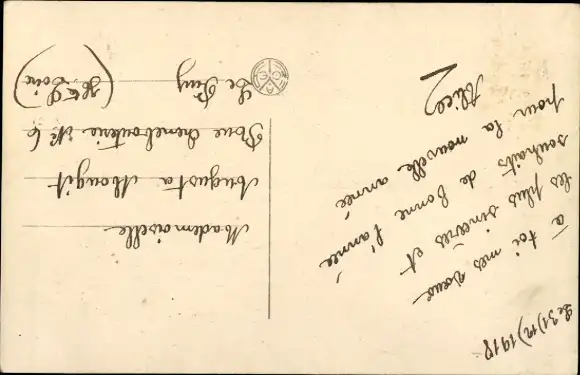 Le 31/12/1918
à toi mes vœux
les plus sincères et
souhaits de bonne l'année
pour la nouvelle année
Alice
Mademoiselle
Augusta Mougit
Rue Chenebouterie N° 6
Le Puy
(Hte Loire)